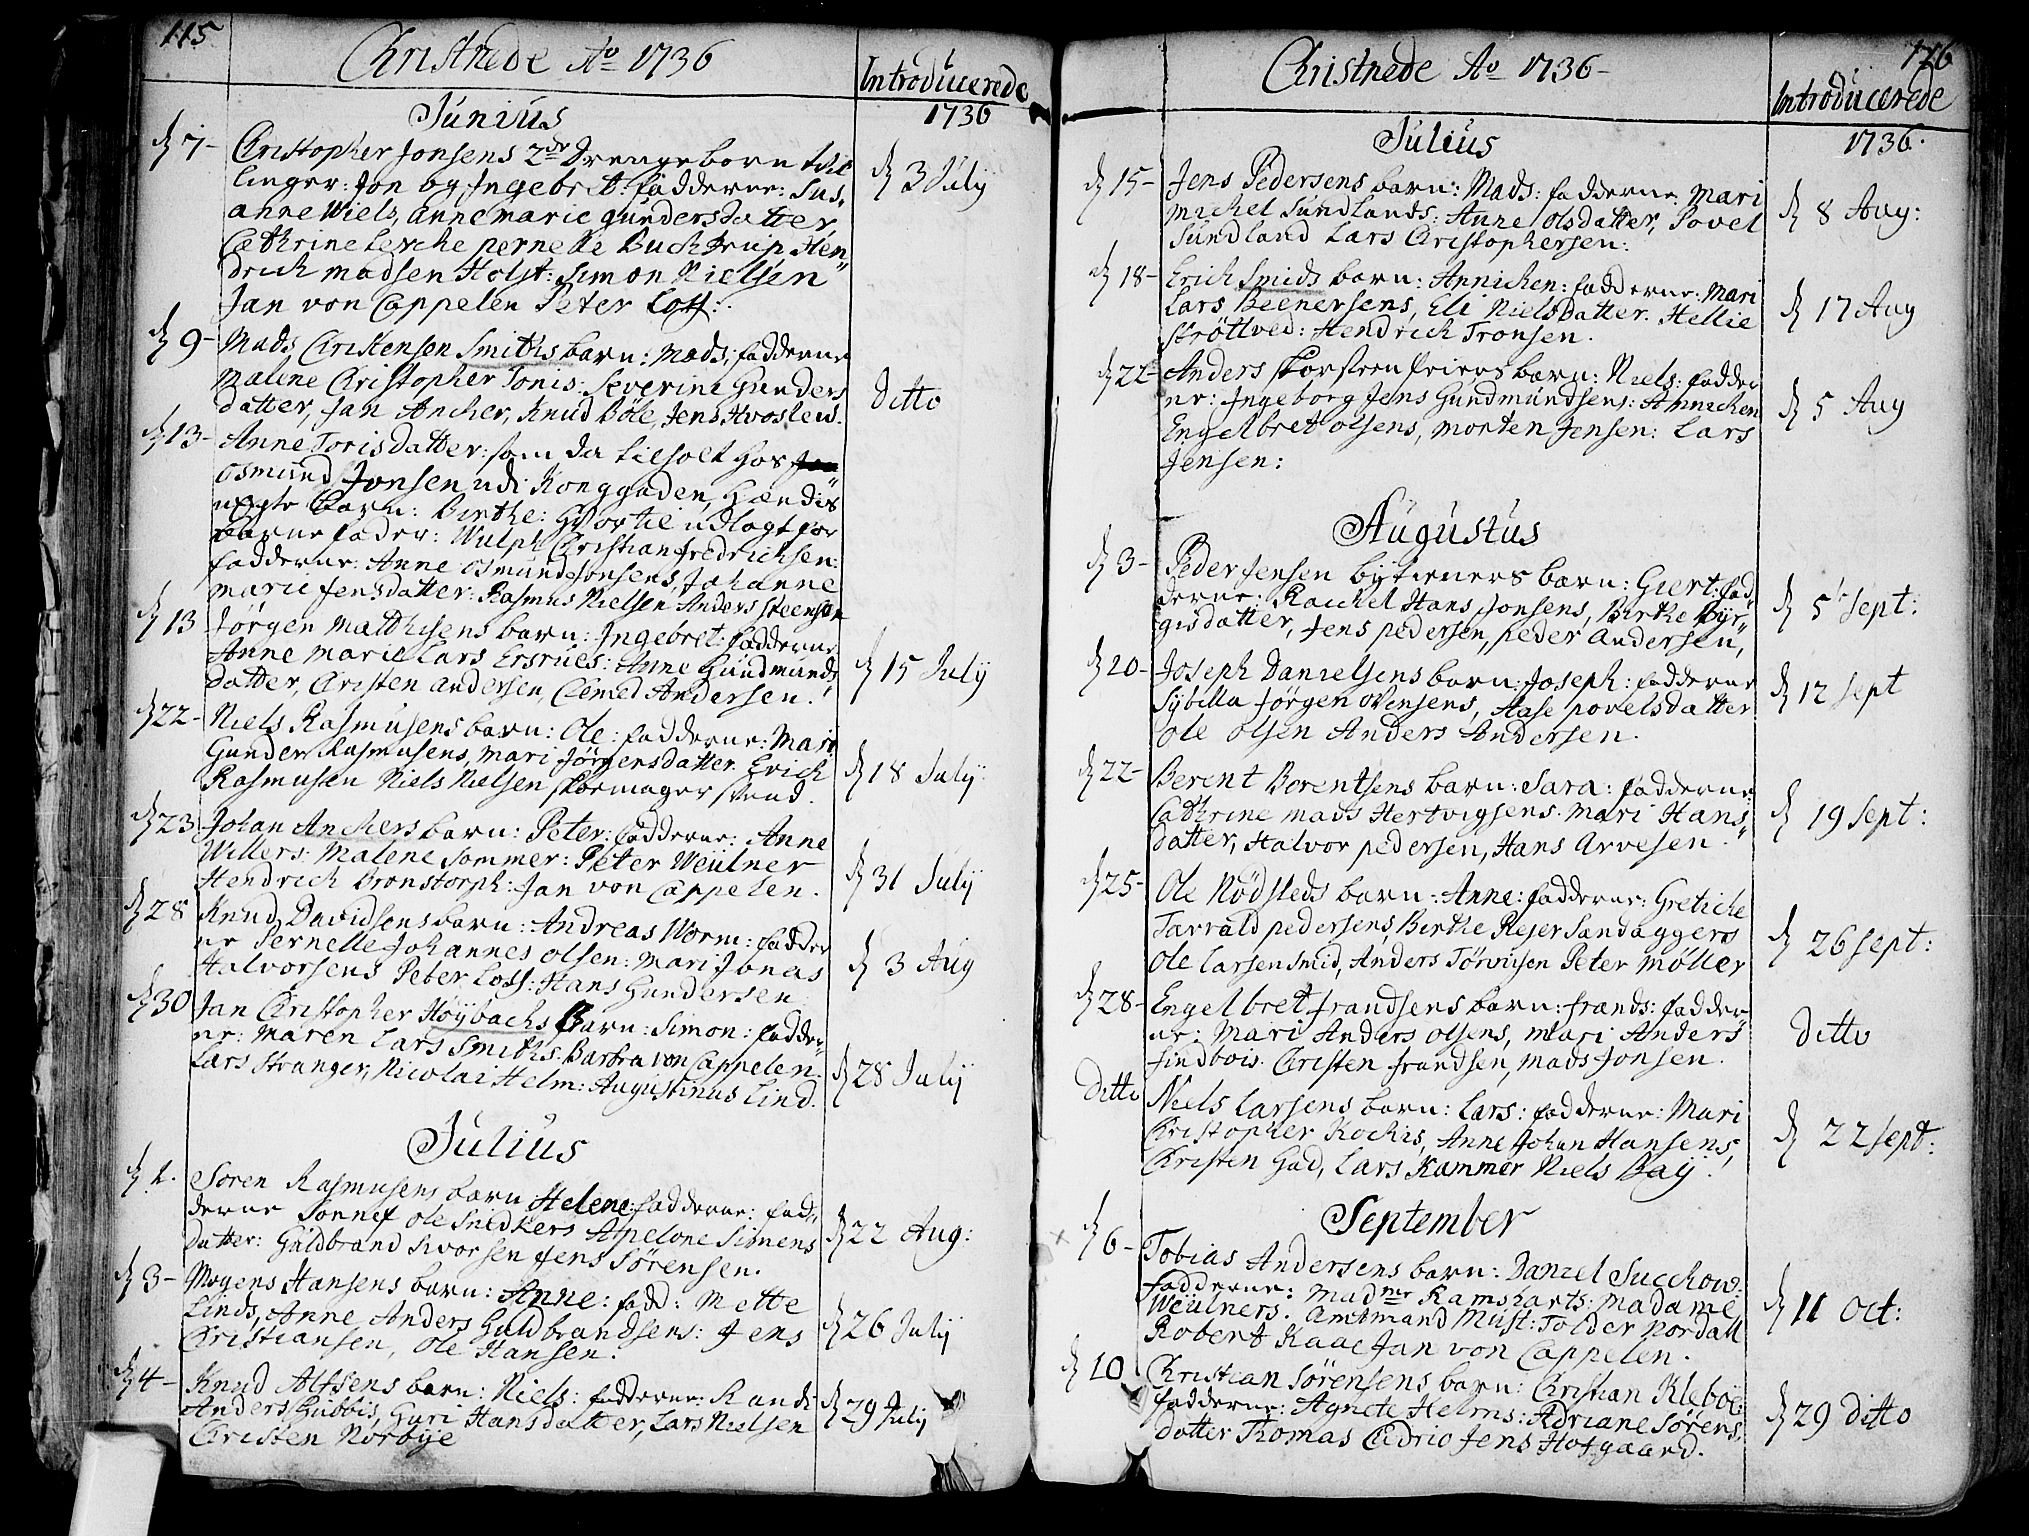 115
Christnede Ao 1736
Introducerede
1736
Junius
d 7-
Christopher Jonsens 2de Drengeborn tvil
linger: Jon og Ingebret: fadderne: Sus,
anne Wiels, Anne marie gundersdatter
Cathrine Lesche pernelle Buchtrup Hen„
drich madsen Holst: Simon Nielsen
Jan von Cappelen Peter Loss:
d 3 July
d 9-
Mads Christensen Smiths barn: Mads: fadderne
Malene Christopher Tonis: Severine Gunders
datter, Jan Ancher, Knud Böle, Jens Hvoslew.
Ditto
d 13-
Anne Torisdatter: som da tilholt hos
Osmund Jonsen udi Konggaden, hændis
uegte Barn: Birthe: Hvortil udlagt for
Barne fader: Wulph Christian fredrichsen:
fadderne: Anne Osmund Jonsens, Johanne
marie Jensdatter: Rasmus Nielsen Anders Steensen
d 13
Jörgen Matthisens barn: Ingebret: fadderne
Anne Marie Lars Ersrues: Anne Gundmunds
datter, Christen Andersen, Clemed Andersen.
d 15 July
d 22-
Niels Rasmusens barn: Ole: fadderne: Mari
Gunder Rasmusens, Mari Jörgensdatter. Erich
Rasmusen Niels Nielsen skormager svend.
d 18 July
d 23
Johan Anchers barn: Peter: fadderne: Anne
Willers: Malene Sommer: Peter Weulner
Hendrich Bronstorph: Jan von Cappelen.
d 31 July
d 28
Knud Davidsens barn: Andreas Worm: fadder
ne Pernelle Johannes Olsen: Mari Jonas
Halvorsens Peter Loss: Hans Gundersen
d 3 Aug
d 30
Jan Christopher Höybachs Barn: Simon: fadder„
ne: Maren Lars Smiths. Barbra von Cappelen.
Lars Stranger, Nicolai Helm: Augustinus Lind.
d 28 July
Julius
d 2.
Sören Rasmusens barn Helene: fadderne: fad„
derne Sonnef Ole Snedkers Apelone Simens
datter: Guldbrand Sivorsen Jens Sörensen.
d 22 Aug:
d 3-
Mogens Hansens barn: Anne: fadd: Mette
Linds, Anne Anders Guldbrandsens: Jens
Christiansen, Ole Hansen.
d 26 July
d 4-
Knud Alfsens barn: Niels: fadderne: Randi
Anders Gubbis, Guri Hansdatter, Lars Nielsen
Christen Norbye
d 29 July
116
Christnede Ao 1736-
Introducerede
1736.
Julius
d 15-
Jens Pedersens barn: Mads: fadderne Mari
Michel Sundlands: Anne Olsdatter, Povel
Sundland Lars Christophersen:
d 8 Aug:
d 18-
Erich Smids barn: Annichen: fadderne: Mari
Lars Beenersens, Eli Nielsdatter. Hellie
Ströttved: Hendrich Tronsen.
d 17 Aug
d 22-
Anders Skorsteenfeiers barn: Niels: fadder
ne: Ingeborg Jens Gundmundsens: Annichen
Engelbret Olsens, Morten Jensen: Lars
Jensen:
d 5 Aug
Augustus
d 3-
Peder Jensen bytieners barn: Giert: fad„
derne: Rachel Hans Jonsens, Birthe Byr„
gisdatter, Jens pedersen, peder Andersen,
d 5 Sept:
d 20-
Joseph Danielsens barn: Joseph: fadderne
Sybilla Jörgen Ovensens, Aase povelsdatter
Ole Olsen Anders Andersen.
d 12 Sept
d 22-
Berent Borentsens barn: Sara: fadderne
Cathrine mads Hertvigsens. Mari Hans
datter, Halvor pedersen, Hans Arvesen.
d 19 Sept:
d 25-
Ole Nödsleds barn: Anne: fadderne: Gretiche
Tarrald pedersens, Birthe Rejer Sandaggers
Ole Larsen smid, Anders Törrisen Peter Möller
d 26 Sept:
d 28-
Engelbret frandsens barn: frands: fadder„
ne: Mari Anders Olsens, Mari Anders
findbois. Christen frandsen, Mads Jonsen.
Ditto
Ditto
Niels Larsens barn: Lars: fadderne: Mari
Christopher Kochis, Anne Johan Hansens,
Christen Gad, Lars Kammer Niels Bay.
d 22 Sept:
September
d 6-
Tobias Andersens barn: Daniel Succhow:
fadderne: Madme Ramsharts: Madame
Weulners. Amtmand Must: Tolder Nordall
Robert Raae Jan von Cappelen.
d 11 Oct:
d 10
Christian Sörensens barn: Christian Kleboe:
fadderne: Agnete Helms: Adriane Sörens
datter Thomas Cudrio Jens Hofgaard.
d 29 Ditto